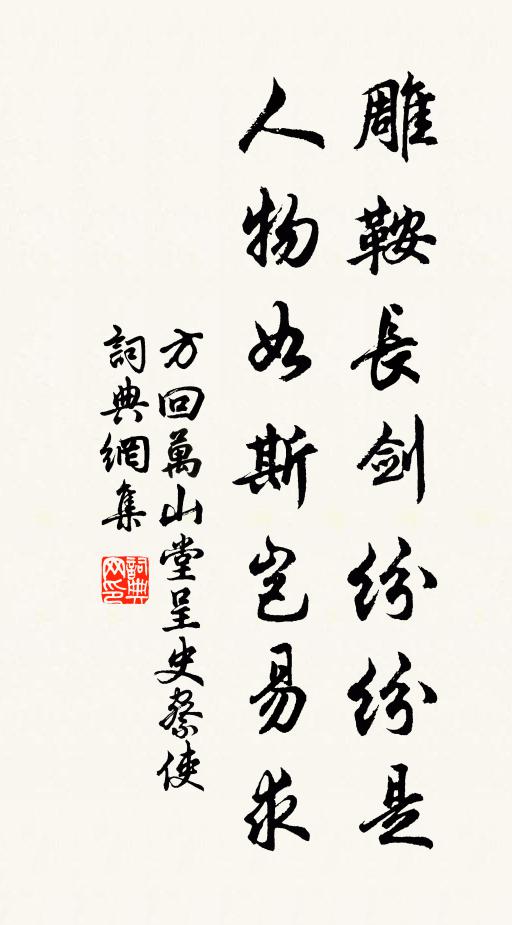 雕鞍長劍紛紛是
人物如斯豈易求
方回萬山堂呈史察使
詞典網集
詞典網印